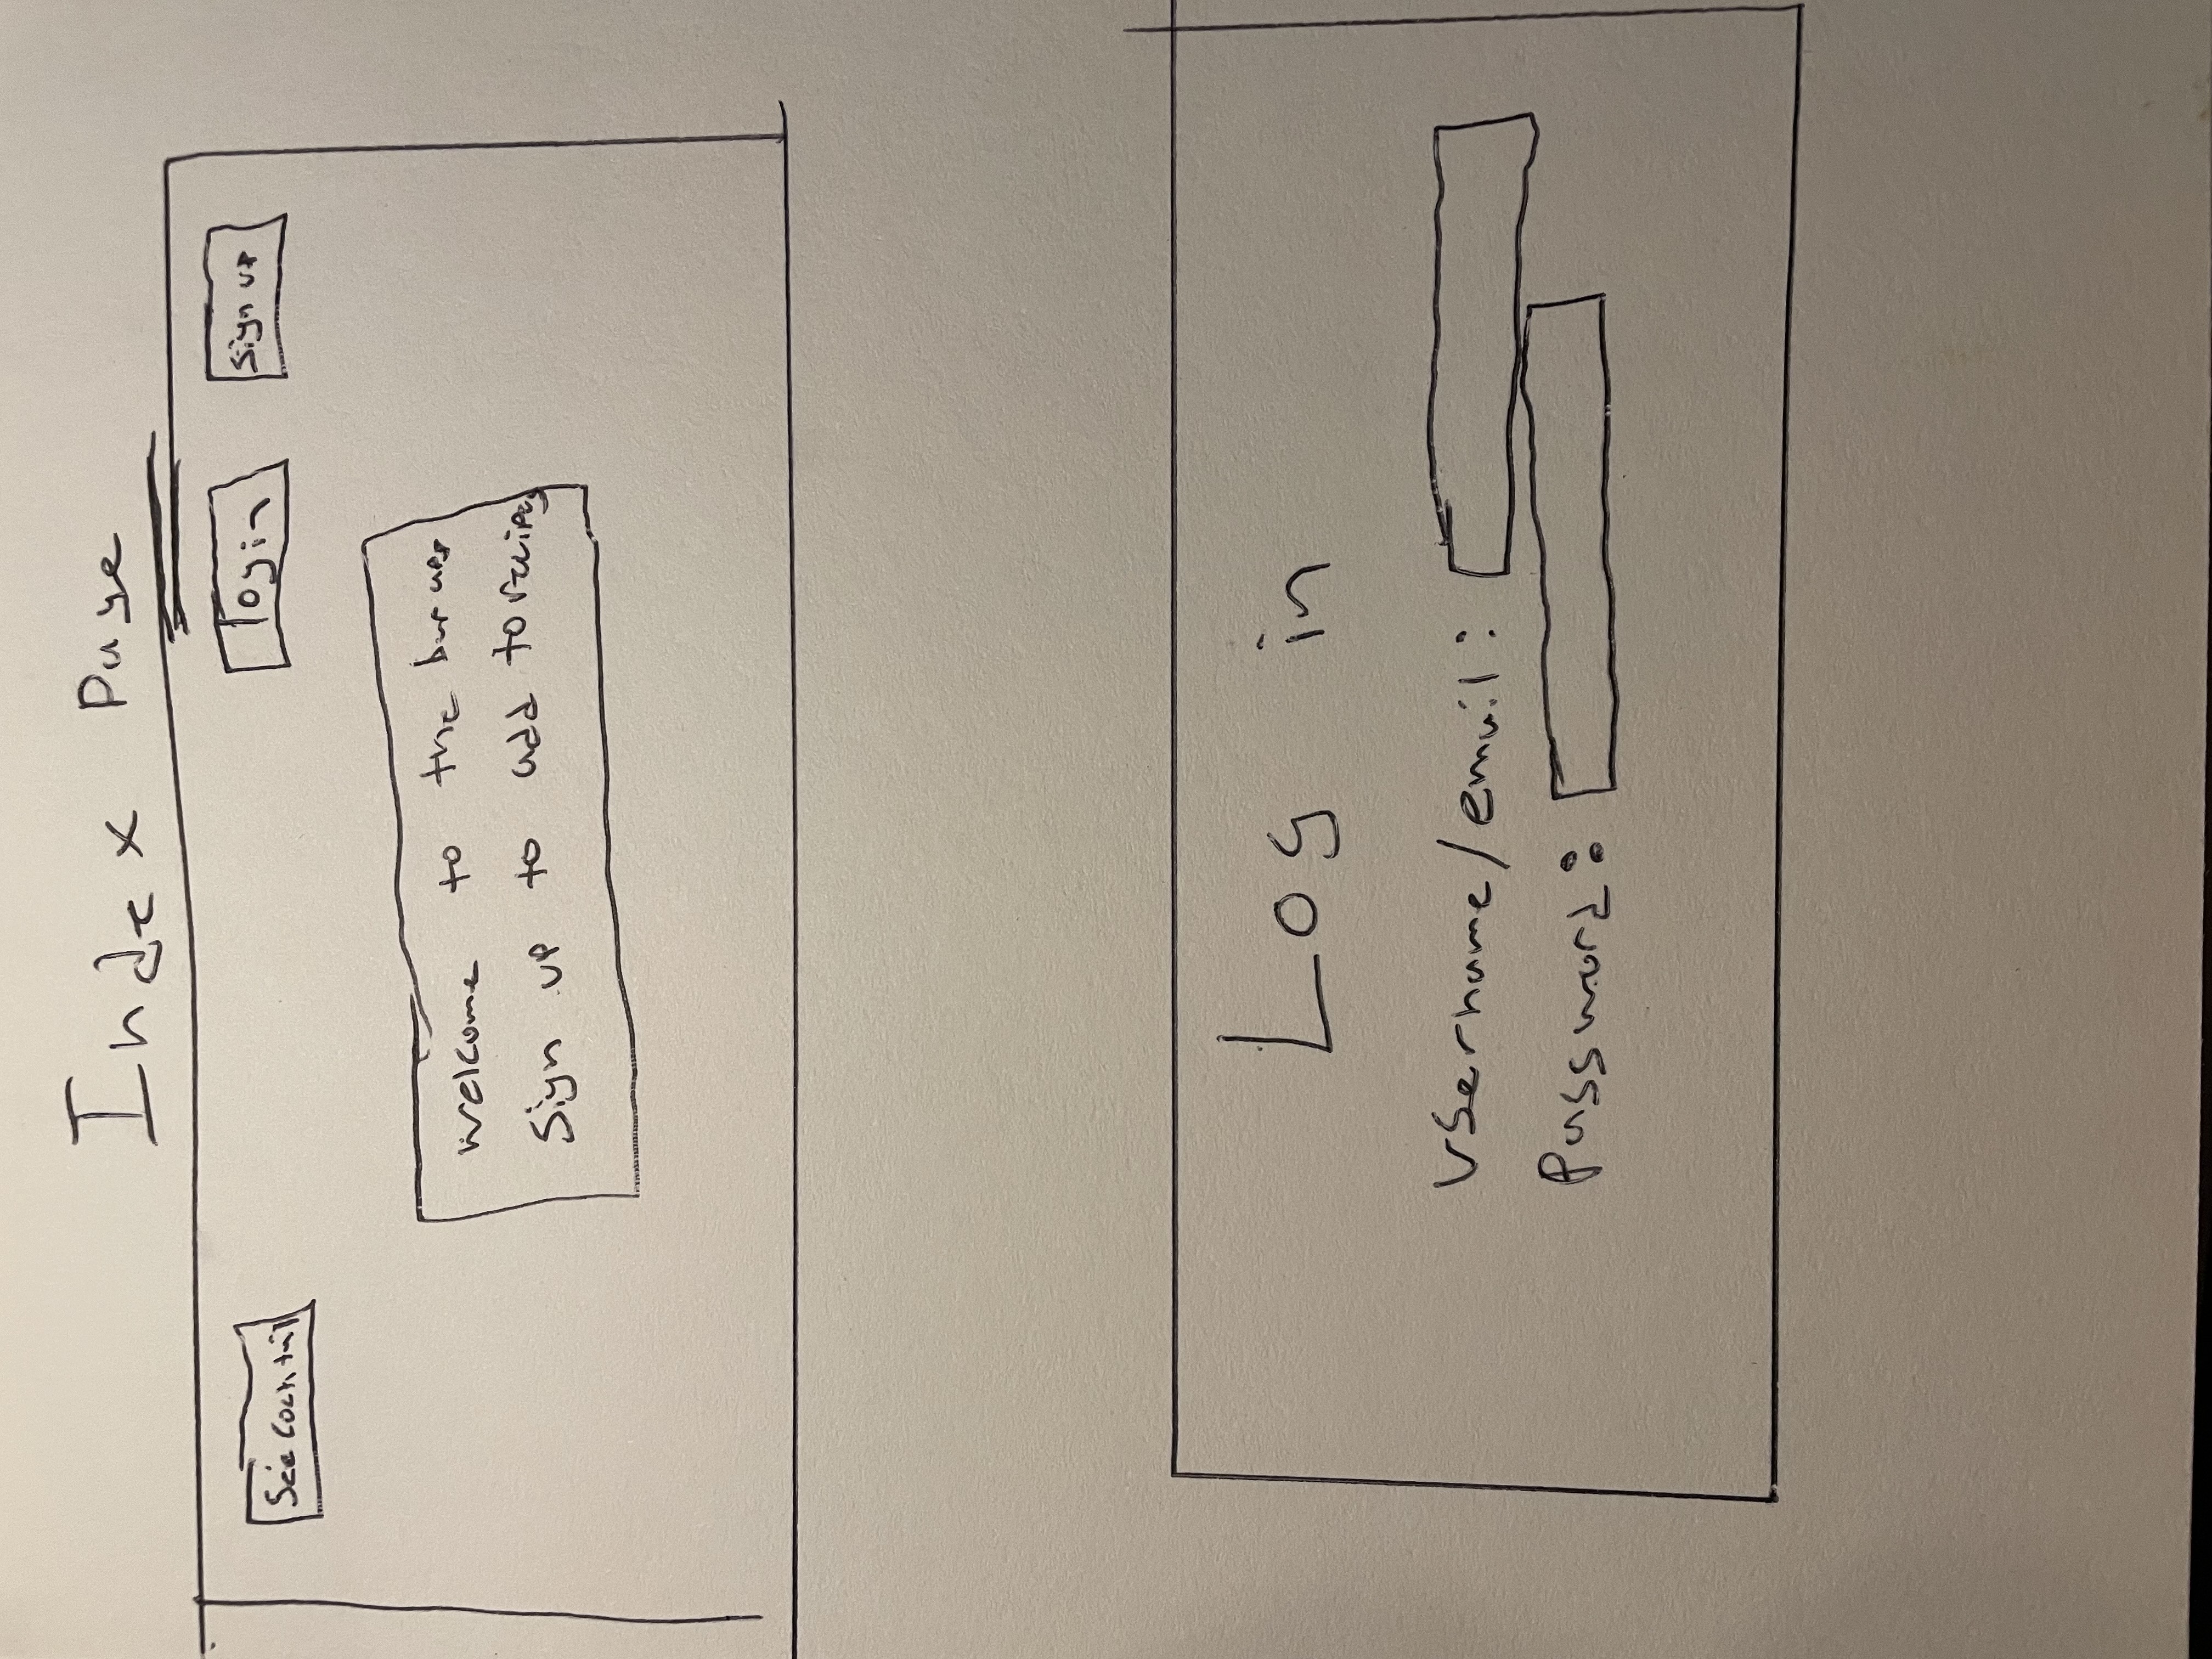 Index Page
See Cocktail
login
Sign up
Welcome to the bar app
Sign up to add to recipes
Log in
Username/email:
Password: